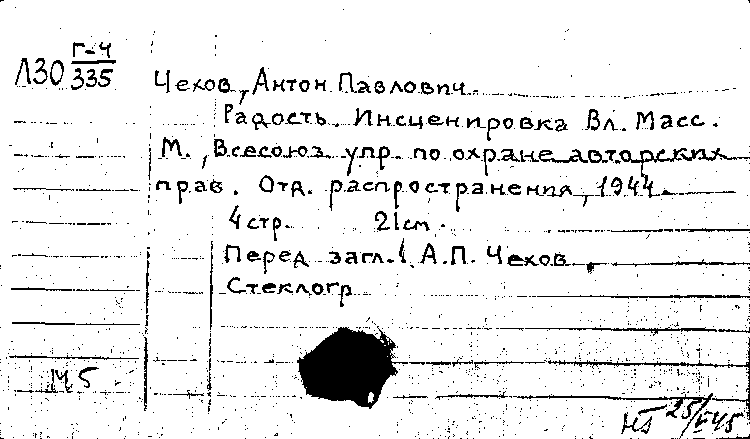 Л30 Г-4/335
Чехов, Антон Павлович.
Радость. Инсценировка Вл. Масс.
М., Всесоюз. упр. по охране авторских
прав. Отд. распространения, 1944.
4 стр. 21 см.
Перед загл.: А.П. Чехов.
Стеклогр
М5